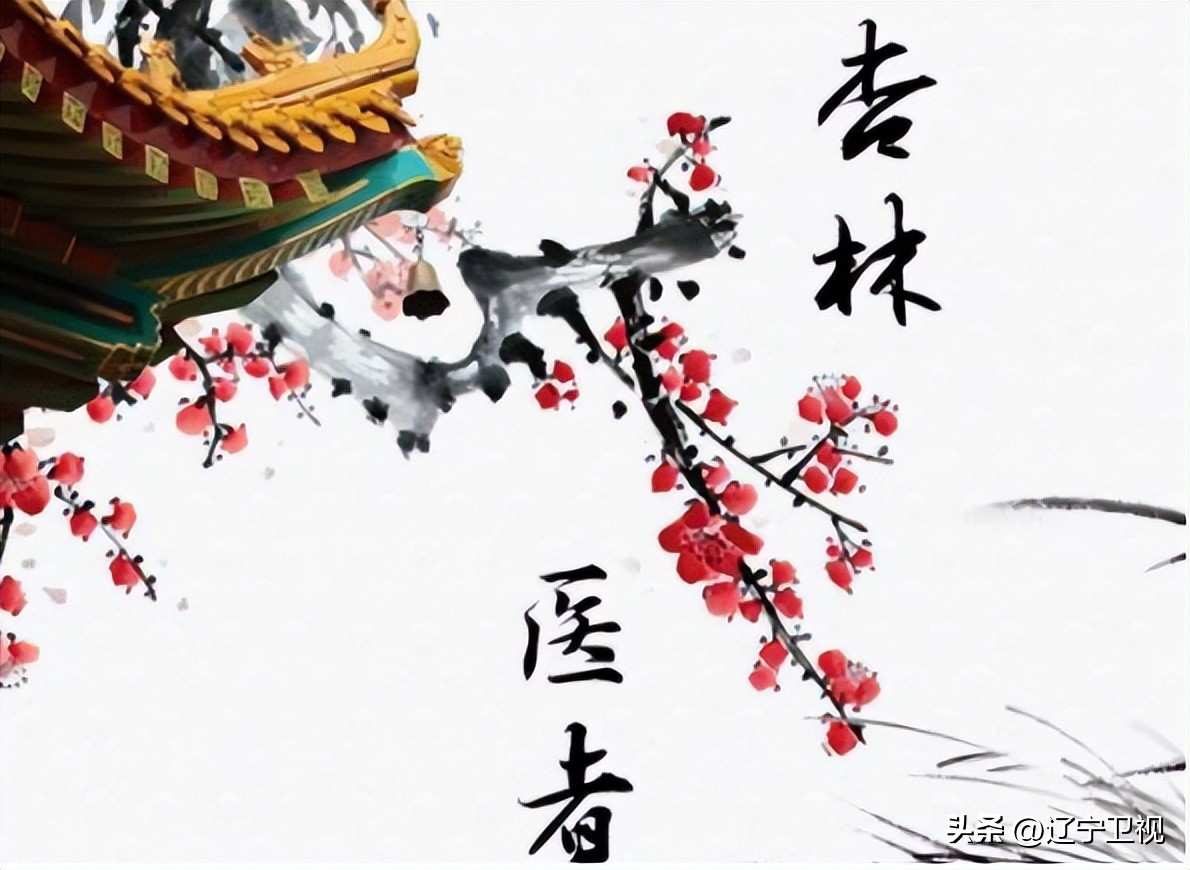 杏林
医者
头条 @辽宁卫视